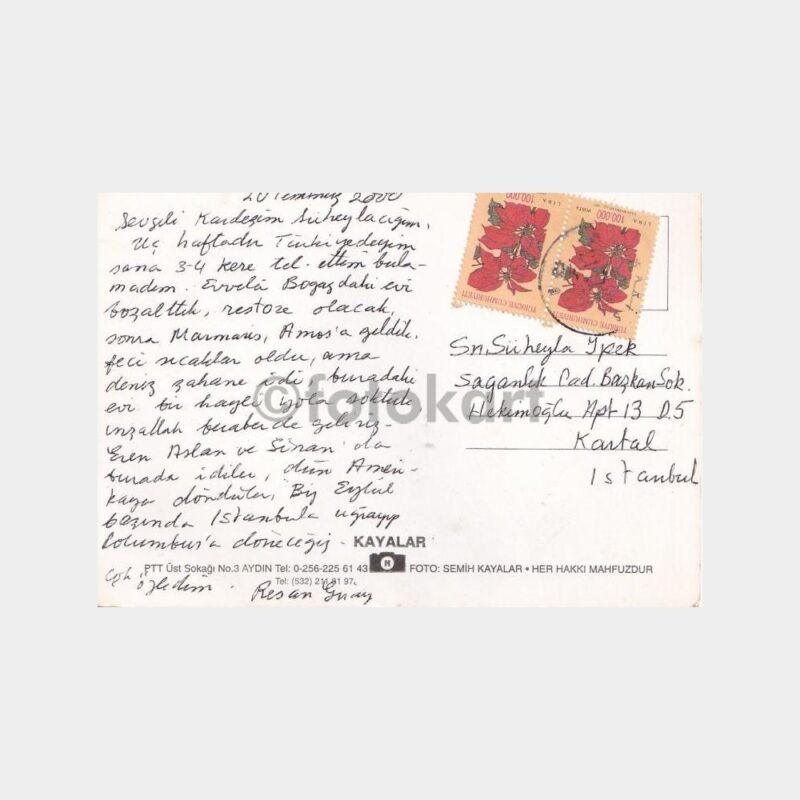 20 Temmuz 2000
Sevgili Kardeşim Süheylacığım,
Üç haftadır Türkiyedeyim
sana 3-4 kere tel. ettim bula-
madım. Evvelâ Boğazdaki evi
boşalttık, restore olacak,
sonra Marmaris, Amos'a geldik.
feci sıcaklar oldu, ama
deniz şahane idi, buradaki
evi bir hayli yola soktuk
inşallah beraber de geliriz
Eren Aslan ve Sinan da
burada idiler, dün Ameri-
kaya döndüler, Biz Eylül
başında Istanbula uğrayıp
Columbus'a döneceğiz.
Çok özledim.
100.000
LİRA
TÜRKİYE CUMHURİYETİ
100.000
LİRA
TÜRKİYE CUMHURİYETİ
Sn. Süheyla İpek
Soğanlık Cad. Başkan Sok.
Hekimoğlu Apt 13 D.5
Kartal
Istanbul
©fotokart
KAYALAR
PTT Üst Sokağı No.3 AYDIN Tel: 0-256-225 61 43 FOTO: SEMİH KAYALAR • HER HAKKI MAHFUZDUR
Tel: (532) 211 81 97